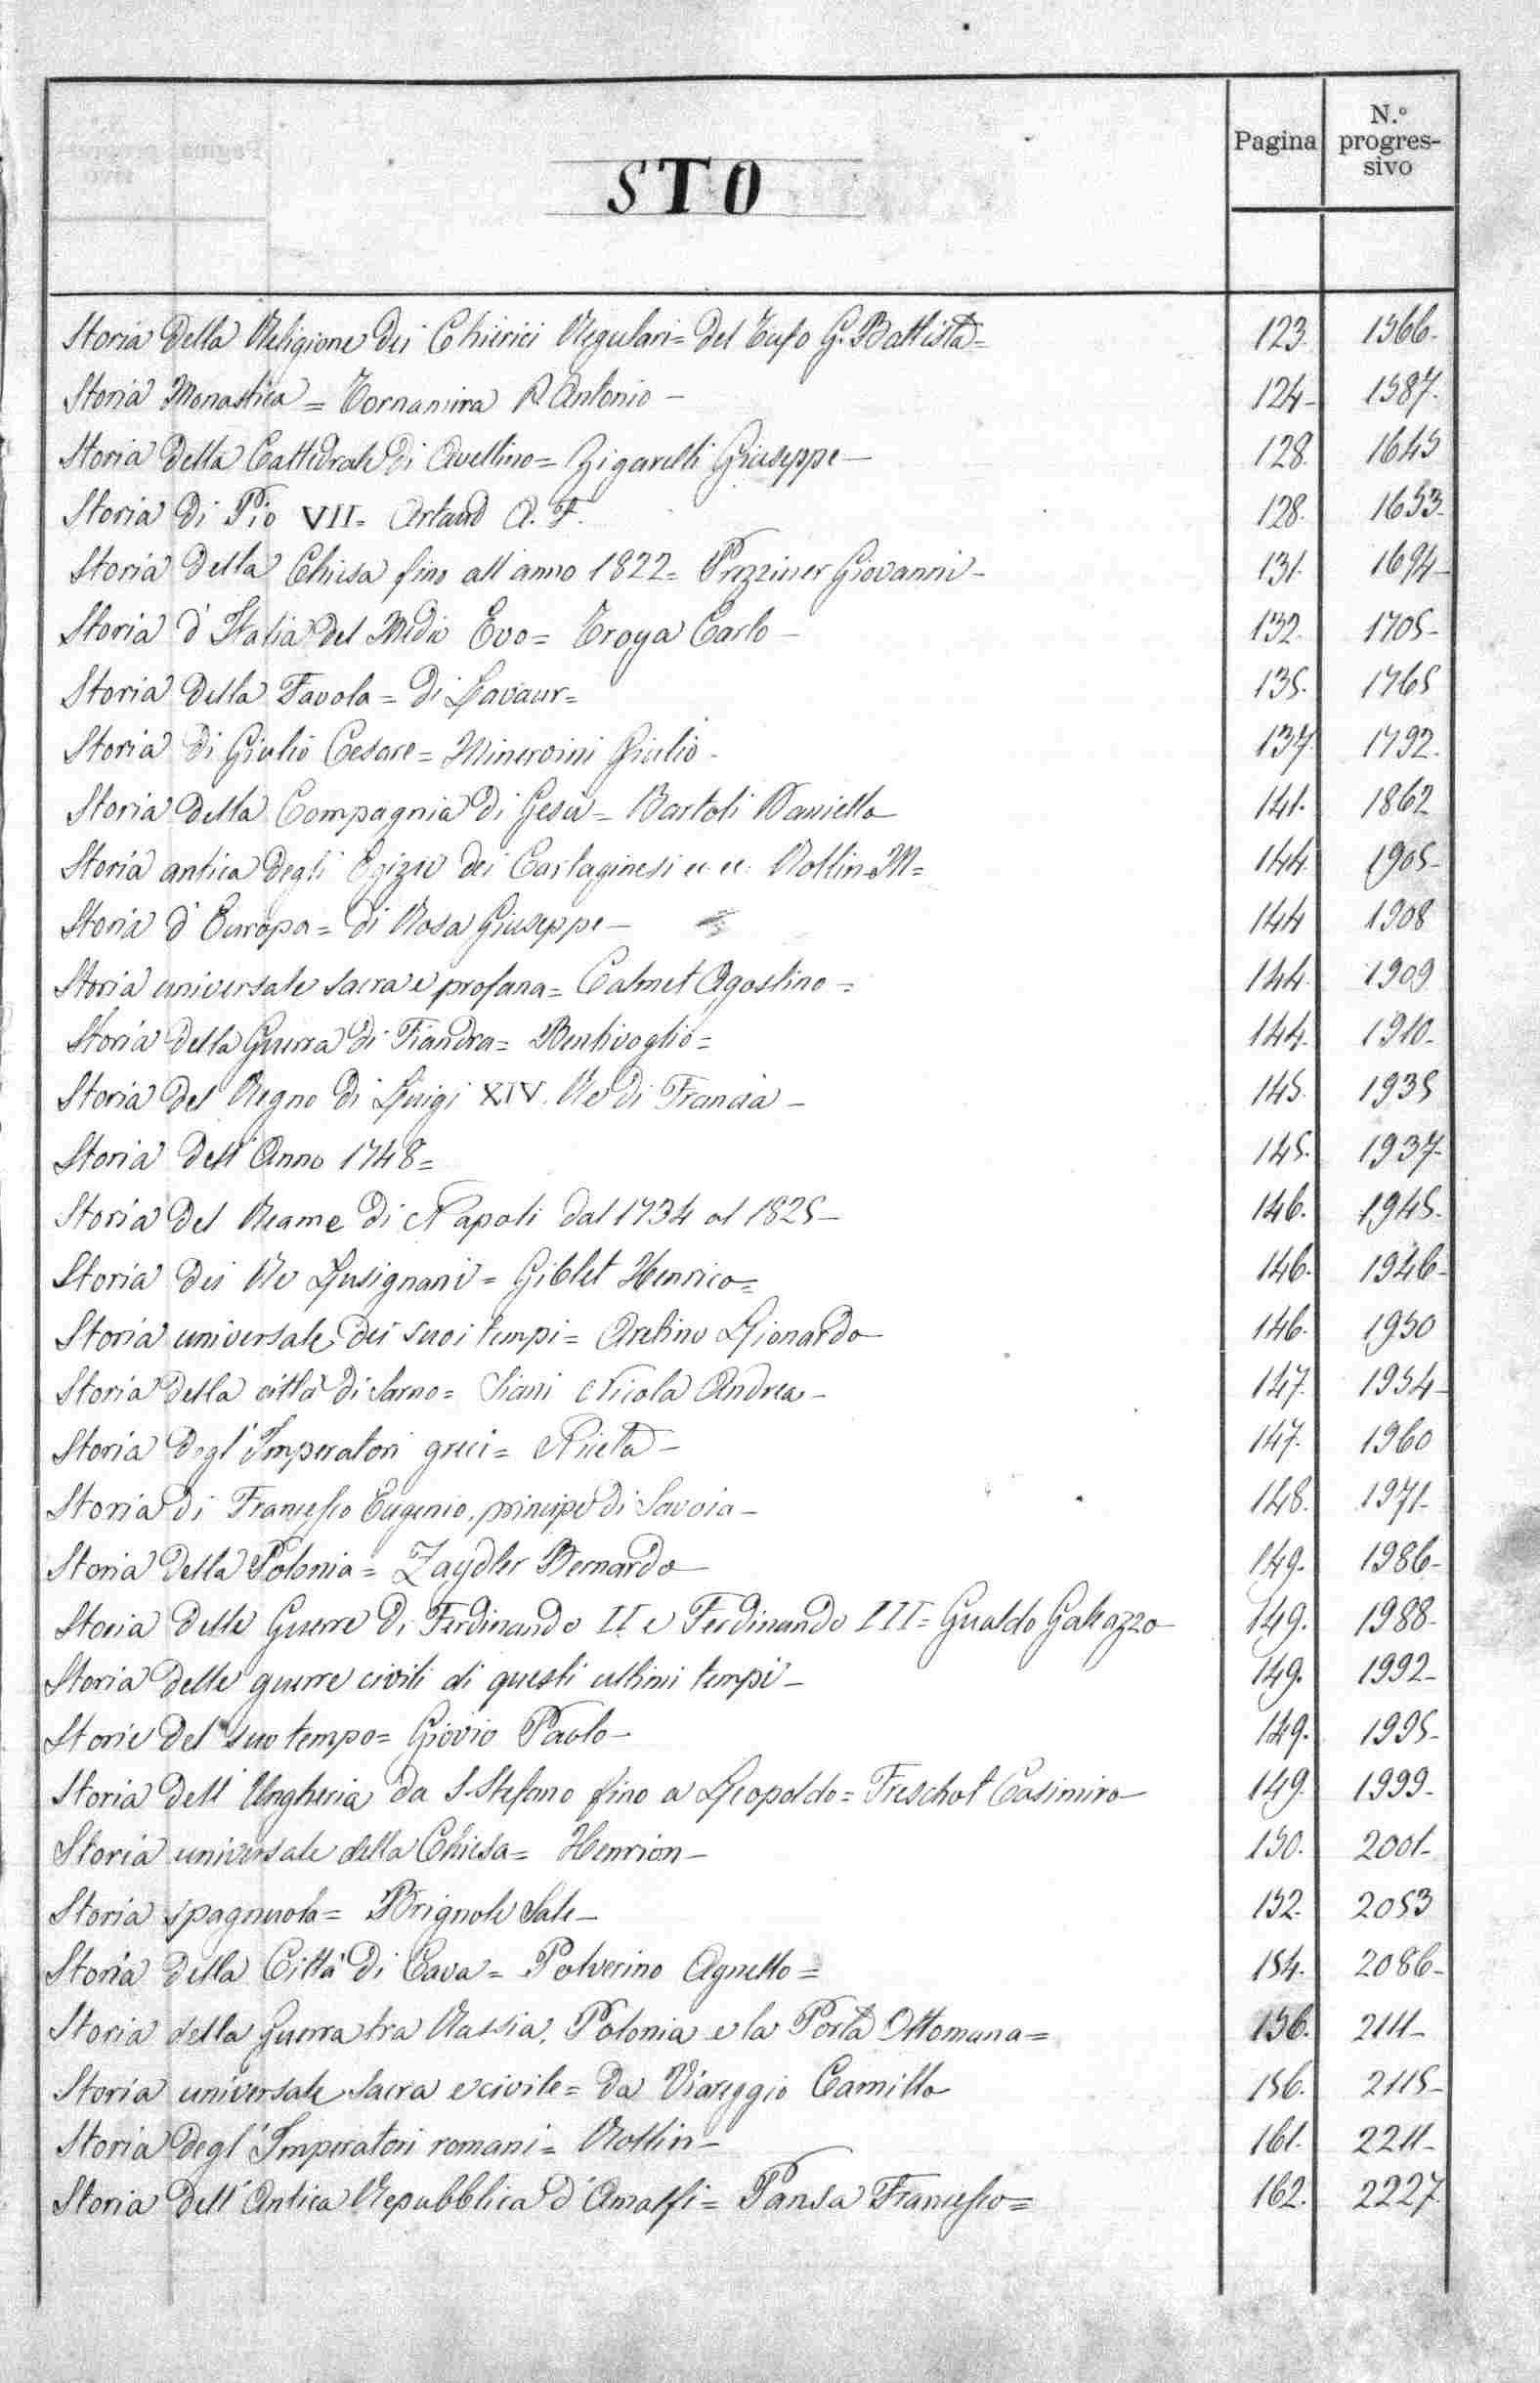 STO
Pagina
N.º progres-sivo
Storia della Religione dei Chierici Regulari= del Tufo G. Battista= 123. 1566.
Storia Monastica = Tornamira P. Antonio - 124- 1587.
Storia della Cattedrale di Avellino= Zigarelli Giuseppe- 128. 1645
Storia di Pio VII= Artaud A. F. 128. 1653.
Storia della Chiesa fino all'anno 1822= Prezziner Giovanni- 131. 1694-
Storia d'Italia del Medio Evo= Troya Carlo- 132. 1705-
Storia della Favola= di Lavaur= 135. 1765
Storia di Giulio Cesare= Minervini Giulio- 137. 1792.
Storia della Compagnia di Gesù= Bartoli Daniello 141. 1862
Storia antica degli Egizii dei Cartaginesi ec. ec. Rollin M= 144. 1905-
Storia d'Europa= di Rosa Giuseppe- 144 1908
Storia universale sacra e profana= Calmet Agostino= 144. 1909
Storia della Guerra di Fiandra= Bentivoglio= 144. 1910-
Storia del Regno di Luigi XIV. Re di Francia- 145. 1935
Storia dell'Anno 1748= 145. 1937-
Storia del Reame di Napoli dal 1734 al 1825- 146. 1945.
Storia dei Re Lusignani= Giblet Henrico= 146. 1946-
Storia universale dei suoi tempi= Aretino Lionardo 146. 1950
Storia della città di Sarno= Siani Nicola Andrea- 147. 1954-
Storia degl'Imperatori greci= Niceta- 147. 1960
Storia di Francesco Eugenio, principe di Savoia- 148. 1971-
Storia della Polonia= Zaydler Bernardo 149. 1986-
Storia delle Guerre di Ferdinando II e Ferdinando III= Gualdo Galeazzo 149. 1988-
Storia delle guerre civili di questi ultimi tempi- 149. 1992-
Storie del suo tempo= Giovio Paolo- 149. 1995-
Storia dell'Ungheria da S. Stefano fino a Leopoldo= Freschot Casimiro 149. 1999-
Storia universale della Chiesa= Henrion- 150. 2001-
Storia spagnuola= Brignole Sale- 152. 2053
Storia della Città di Cava= Polverino Agnello= 154. 2086-
Storia della Guerra tra Russia, Polonia e la Porta Ottomana= 156. 2111-
Storia universale sacra e civile= Da Viareggio Camillo 156. 2115-
Storia degl'Imperatori romani= Rollin- 161. 2211-
Storia dell'Antica Repubblica d'Amalfi= Pansa Francesco= 162. 2227.